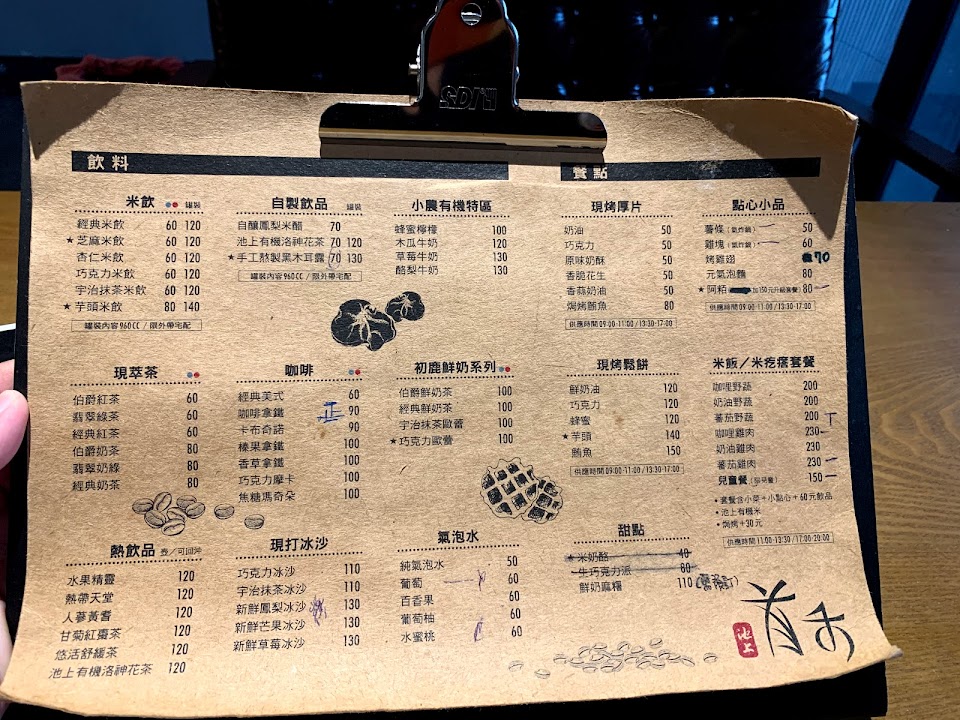 SDI
飲料
米飲 罐裝
經典米飲 60 120
★芝麻米飲 60 120
杏仁米飲 60 120
巧克力米飲 60 120
宇治抹茶米飲 60 120
★芋頭米飲 80 140
罐裝內容960CC / 限外帶宅配
自製飲品 罐裝
自釀鳳梨米醋 70
池上有機洛神花茶 70 120
★手工熬製黑木耳露 70 130
罐裝內容960CC / 限外帶宅配
小農有機特區
蜂蜜檸檬 100
木瓜牛奶 120
草莓牛奶 130
酪梨牛奶 130
現萃茶
伯爵紅茶 60
翡翠綠茶 60
經典紅茶 60
伯爵奶茶 80
翡翠奶綠 80
經典奶茶 80
咖啡
經典美式 60
咖啡拿鐵 正 90
卡布奇諾 90
榛果拿鐵 100
香草拿鐵 100
巧克力摩卡 100
焦糖瑪奇朵 100
初鹿鮮奶系列
伯爵鮮奶茶 100
經典鮮奶茶 100
宇治抹茶歐蕾 100
★巧克力歐蕾 100
熱飲品 壺／可回沖
水果精靈 120
熱帶天堂 120
人蔘黃耆 120
甘菊紅棗茶 120
悠活舒緩茶 120
池上有機洛神花茶 120
現打冰沙
巧克力冰沙 110
宇治抹茶冰沙 110
新鮮鳳梨冰沙 130
新鮮芒果冰沙 130
新鮮草莓冰沙 130
氣泡水
純氣泡水 50
葡萄 60
百香果 60
葡萄柚 60
水蜜桃 60
餐點
現烤厚片
奶油 50
巧克力 50
原味奶酥 50
香脆花生 50
香蒜奶油 50
焗烤鮪魚 80
供應時間 09:00-11:00 / 13:30-17:00
點心小品
薯條（氣炸鍋） 50
雞塊（氣炸鍋） 60
烤雞翅 70
元氣泡麵 80
★阿粨（加150元升級套餐） 80
供應時間 09:00-11:00 / 13:30-17:00
現烤鬆餅
鮮奶油 120
巧克力 120
蜂蜜 120
★芋頭 140
鮪魚 150
供應時間 09:00-11:00 / 13:30-17:00
米飯／米疙瘩套餐
咖哩野蔬 200
奶油野蔬 200
蕃茄野蔬 200
咖哩雞肉 230
奶油雞肉 230
蕃茄雞肉 230
兒童餐（限兒童） 150
• 套餐含小菜＋小點心＋60元飲品
• 池上有機米
• 焗烤＋30元
供應時間 11:00-13:30 / 17:00-20:00
甜點
★米奶酪 40
生巧克力派 80
鮮奶麻糬 110
池上